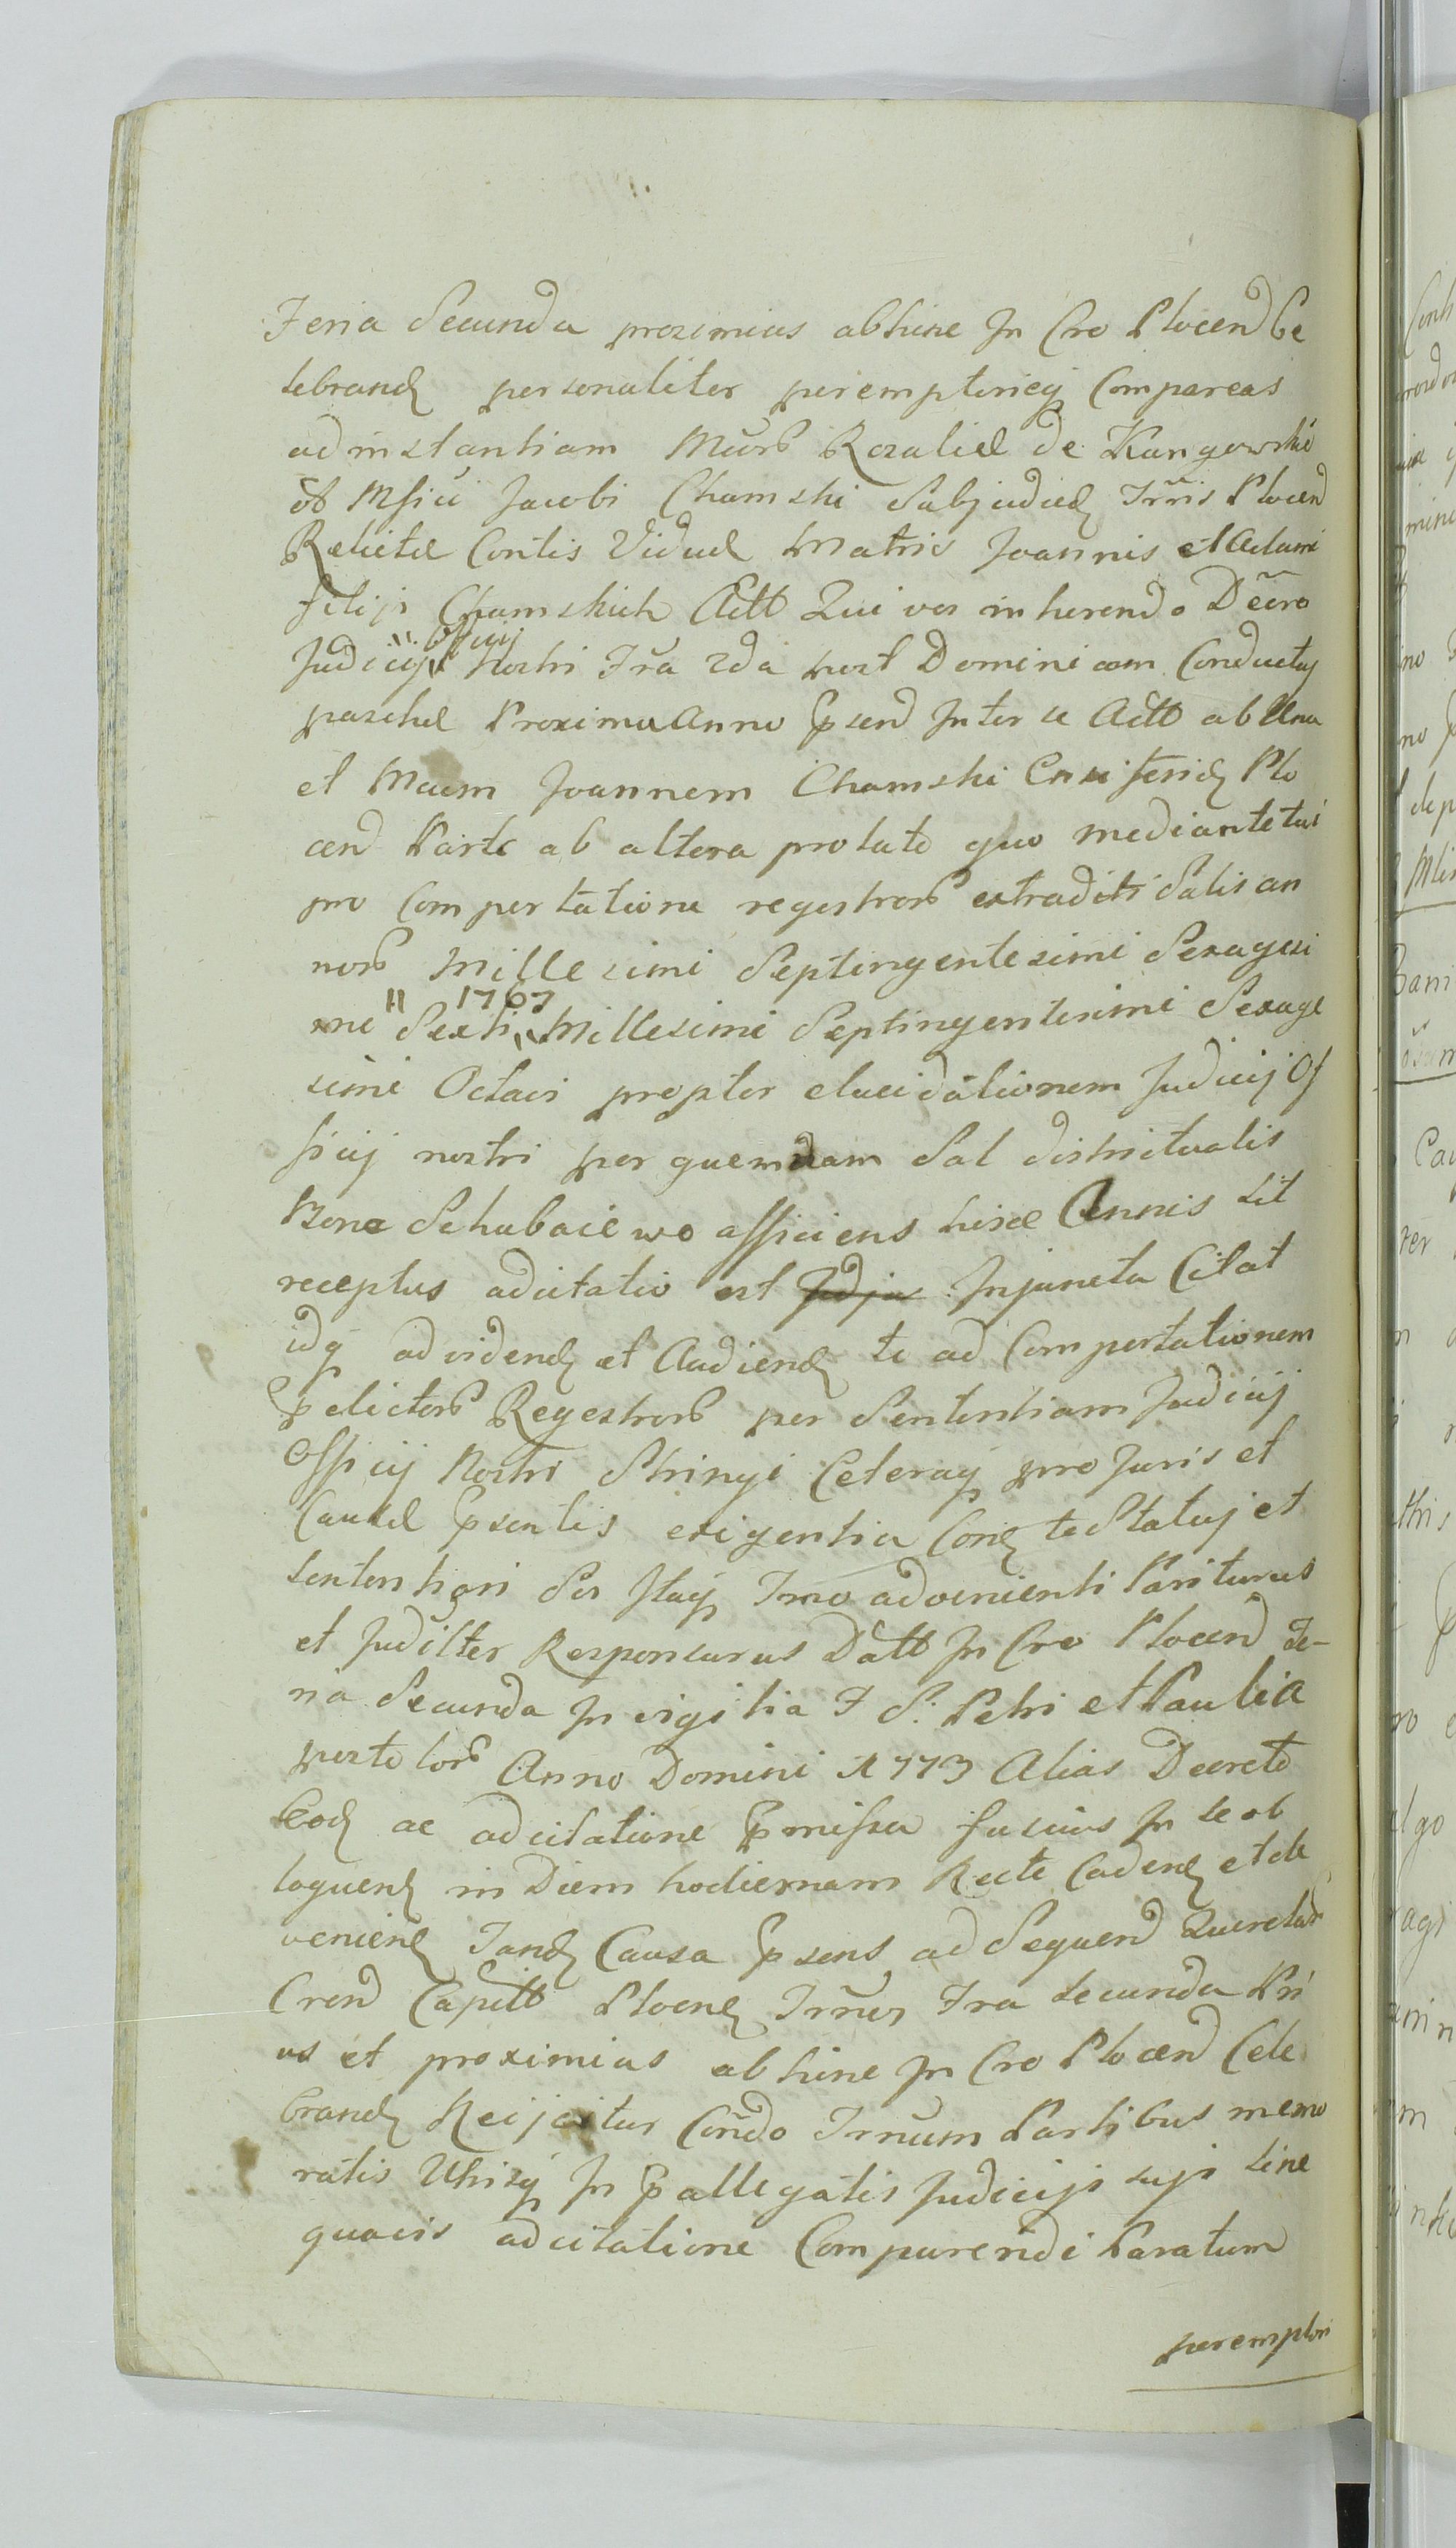 Feria Secunda proximius abhinc In Cro Plocen Ce
lebrand personaliter peremptorieq Compareas
ad instantiam Mcorb Rozaliæ de Kangowskie
ōt Mfici Jacobi Chamski Subjudicq Trris Plocen
Relictæ Contis Viduæ Matris Joannis et Adami
filijs Chamskich Actt Qui vos inherendo Decro
Judicij " officij " Nostri Fra 2da post Dominicam Conductus
paschæ Proxima Anno Psend Inter se Actt ab Una
et Mcum Joannem Chamski Ensiferid Plo
cen Parte ab altera prolato quo mediante tui
pro Comportatione regestrorb extraditi Salis an
norb Millesimi Septingentesimi Sexagesi
mi Sexti " 1767 " Millesimi Septingentesimi Sexage
simi Octavi propter elucidationem Judicij Of
ficij nostri per quemnam Sal districtualis
Bona Schabaiewo afficiens hisce Annis sit
receptus adcitatio est Injuncta Citat
idq ad videnđ et Audienđ te ad Comportationem
Pdictorb Regestrorb per Sententiam Judicij
Officij Nostri Stringi Ceteraq pro Juris et
Causæ Psentis exigentia Conđ te Statuj et
sententiari Sis Itaq Tmo advenienti Pariturus
et Judilter Responsurus Datt In Cro Plocen Fe-
ria Secunda In vigilia F S. Petri et Pauli A
postolorb Anno Domini 1773 Alias Decreto
Eodq ac adcitatione Pmissa fusius In se ob
loquenđ in Diem hodiernam Recte Cadenđ et de
venienđ Tandq Causa Psens ad Sequend Querelar
Crend Capitt Plocenđ Trnos Fra secunda Pri
us et proximius abhinc In Cro Plocen Cele
brandq Reijcitur Condo Trnum Partibus memo
ratis Utrisq In Pallegatis Judicijs sujs sine
quavis adcitatione Comparendi Paratum
peremptori